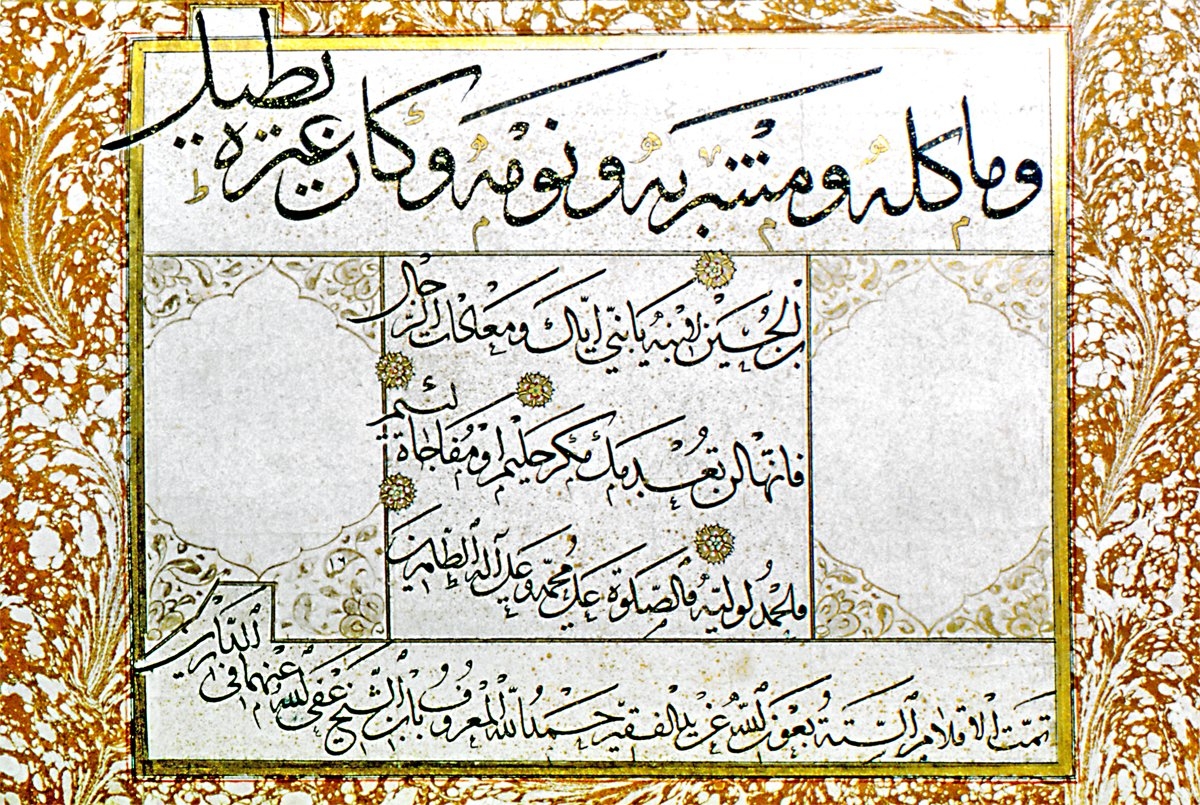 وماكله ومشربه ونومه وكان غيره يطيل
بن الحُسَين لابنه يَا بُنَيَّ اِيّاك وَمُعَادَاتِ الرّجال
فَانّها لن تعْدمك مكر حليم اوْ مُفاجاة لئيم
والحمدُ لوليّه والصّلوة على محمّد وعلى آله الطّاهرين
١٦
تمّت الاقلام السّتة بعون الله عن يد الفقير حمد الله المعروف بابن الشّيخ عفى الله عنهما في الدّارين